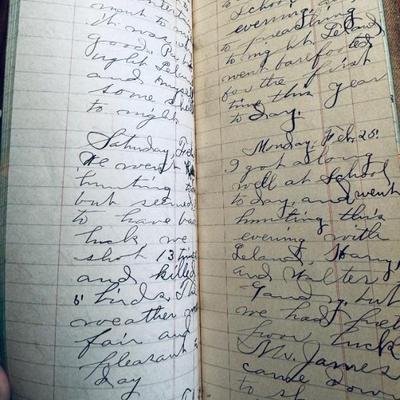 went to
It was
good. Pa
night Leland
and myself
some
to night
Saturday, Feb.
We went
hunting to
but seemed
to have bad
luck we
shot 13 times
and killed
5 birds. The
weather
fair and
pleasant
day
School
evening
to preaching
to night. Leland
went barefooted
for the first
time this year
to day.
Monday, Feb. 25.
I got along
well at School
to day, and went
hunting this
evening with
Leland, Harry,
and Walter
but
we had
luck
Mr. James
came down
to